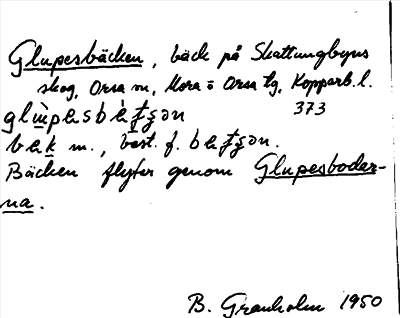 Glupesbäcken, bäck på Skattungbyns
skog, Orsa sn, Mora o Orsa tg, Kopparb. l.
373
bäk m., best. f.
Bäcken flyter genom Glupesbodar-
na.
B. Granholm 1950